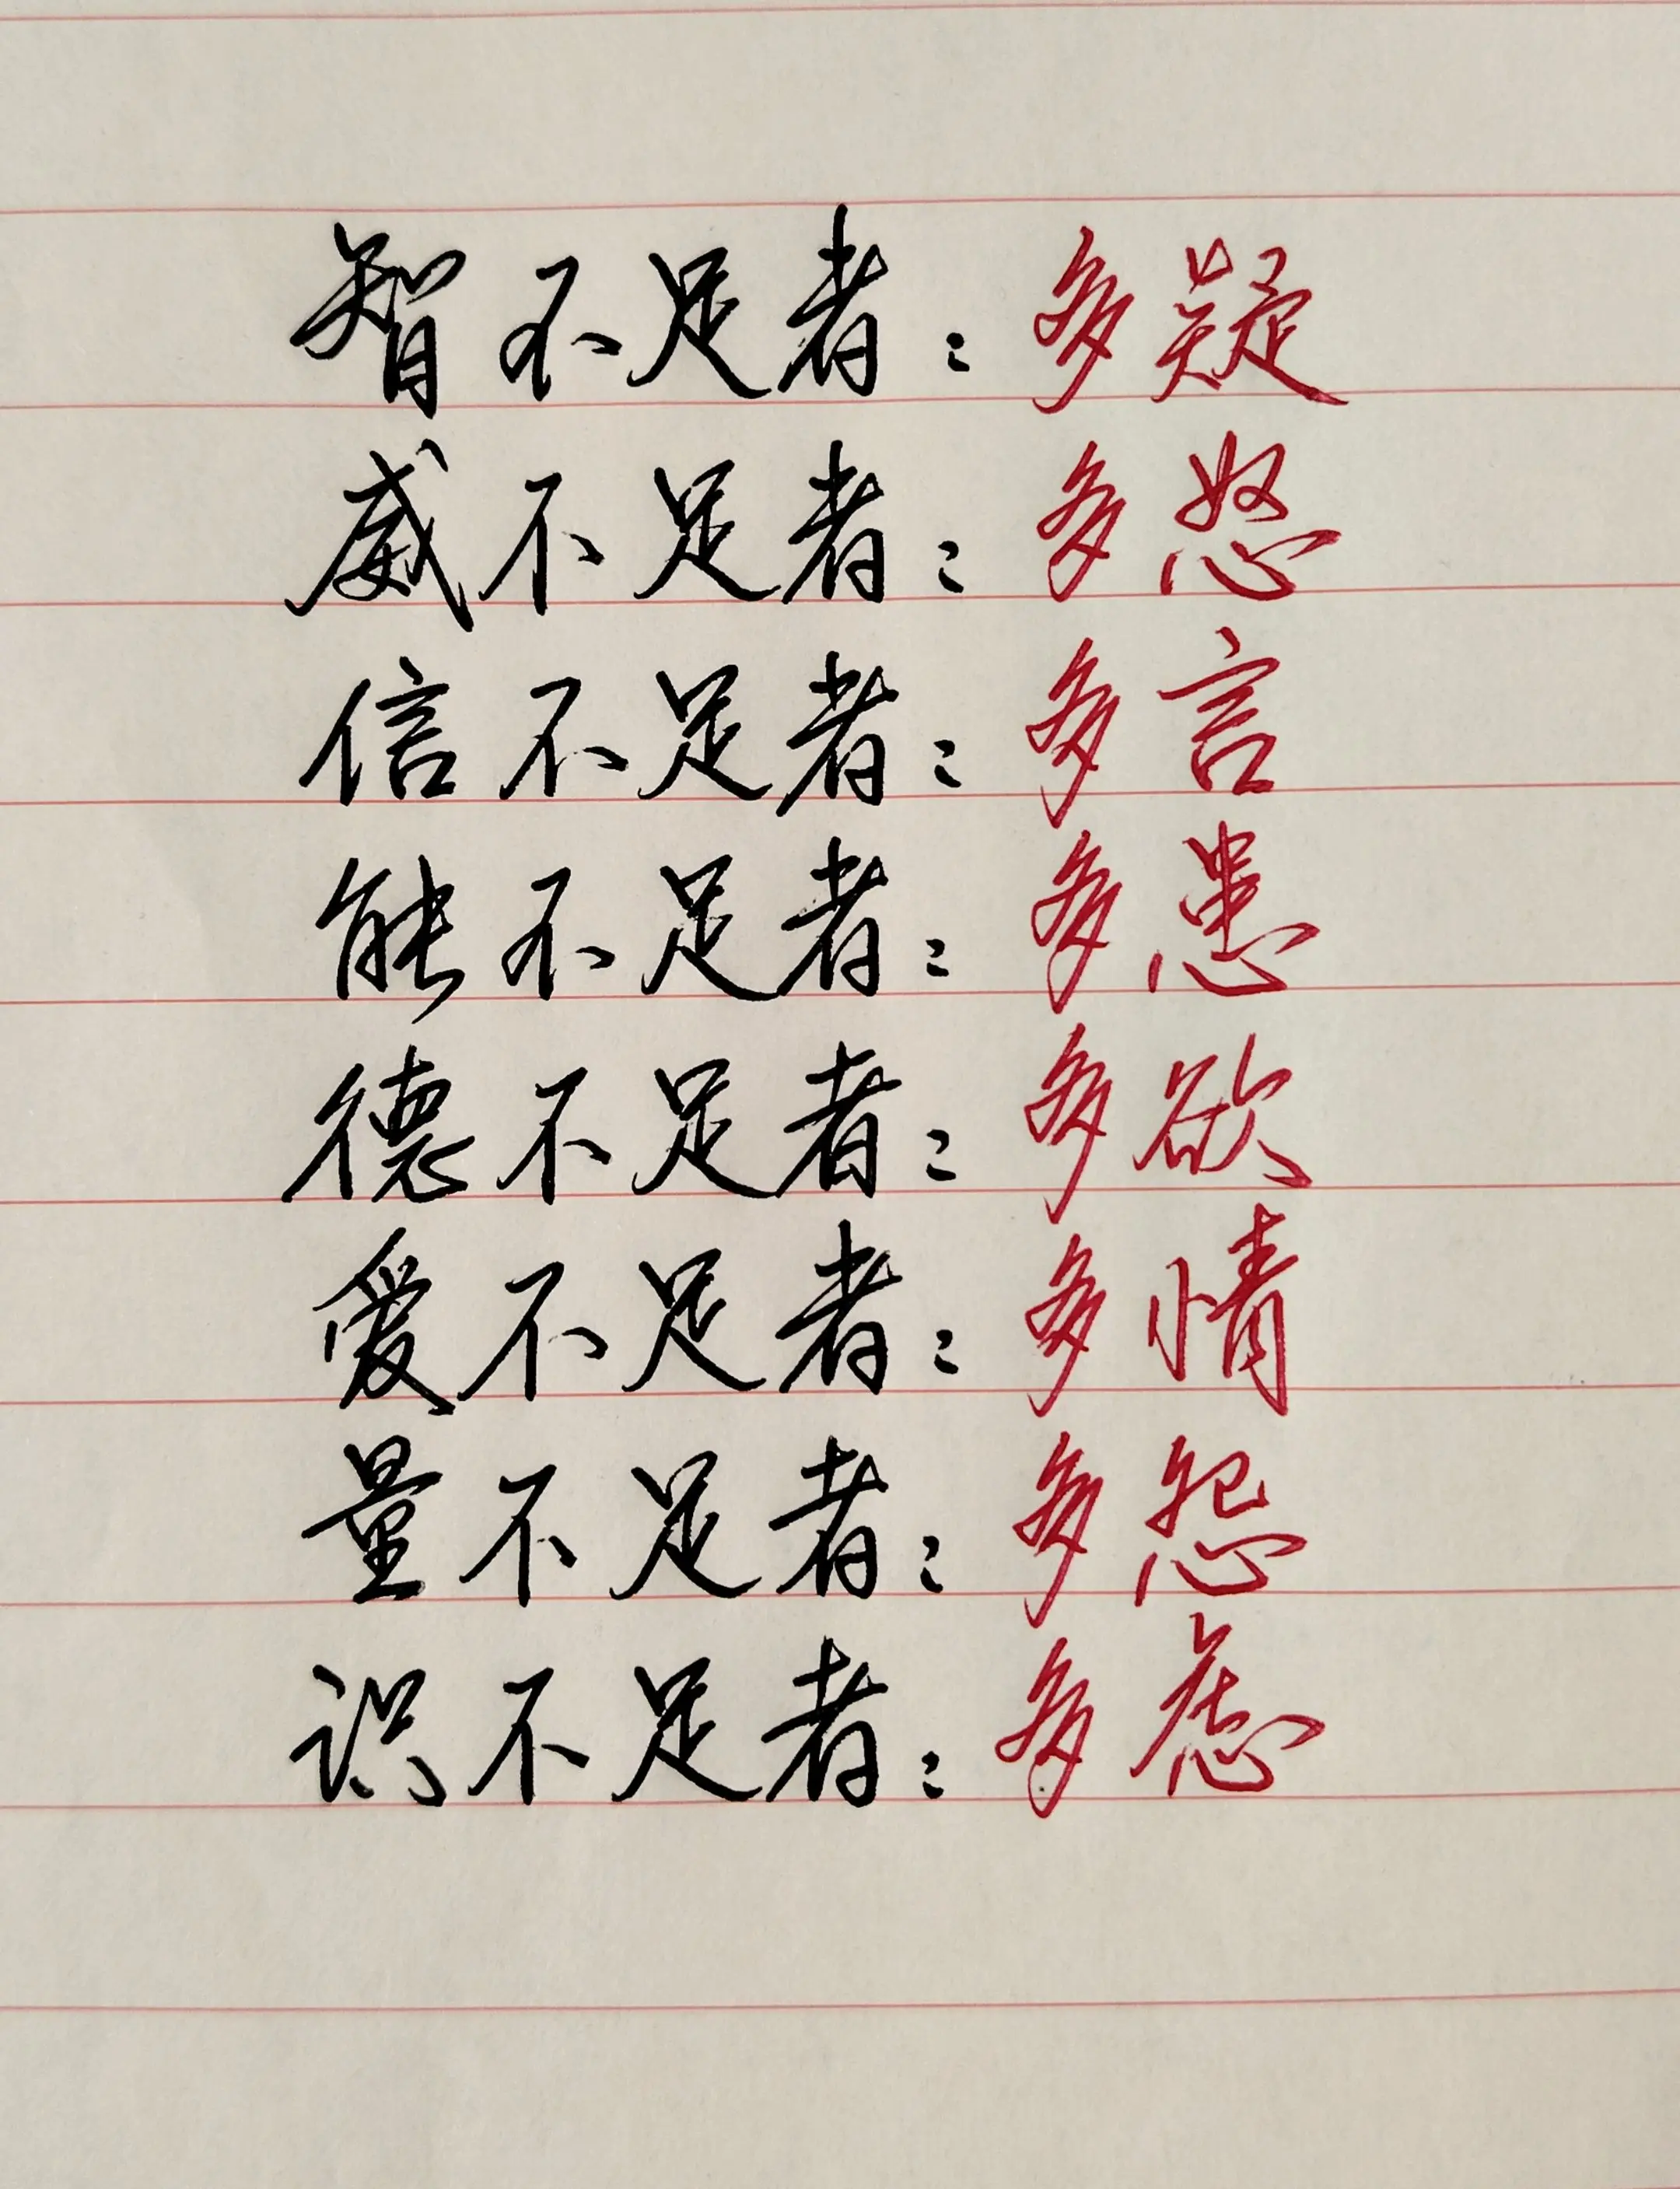 智不足者：多疑
威不足者：多怒
信不足者：多言
能不足者：多患
德不足者：多欲
爱不足者：多情
量不足者：多怨
识不足者：多虑